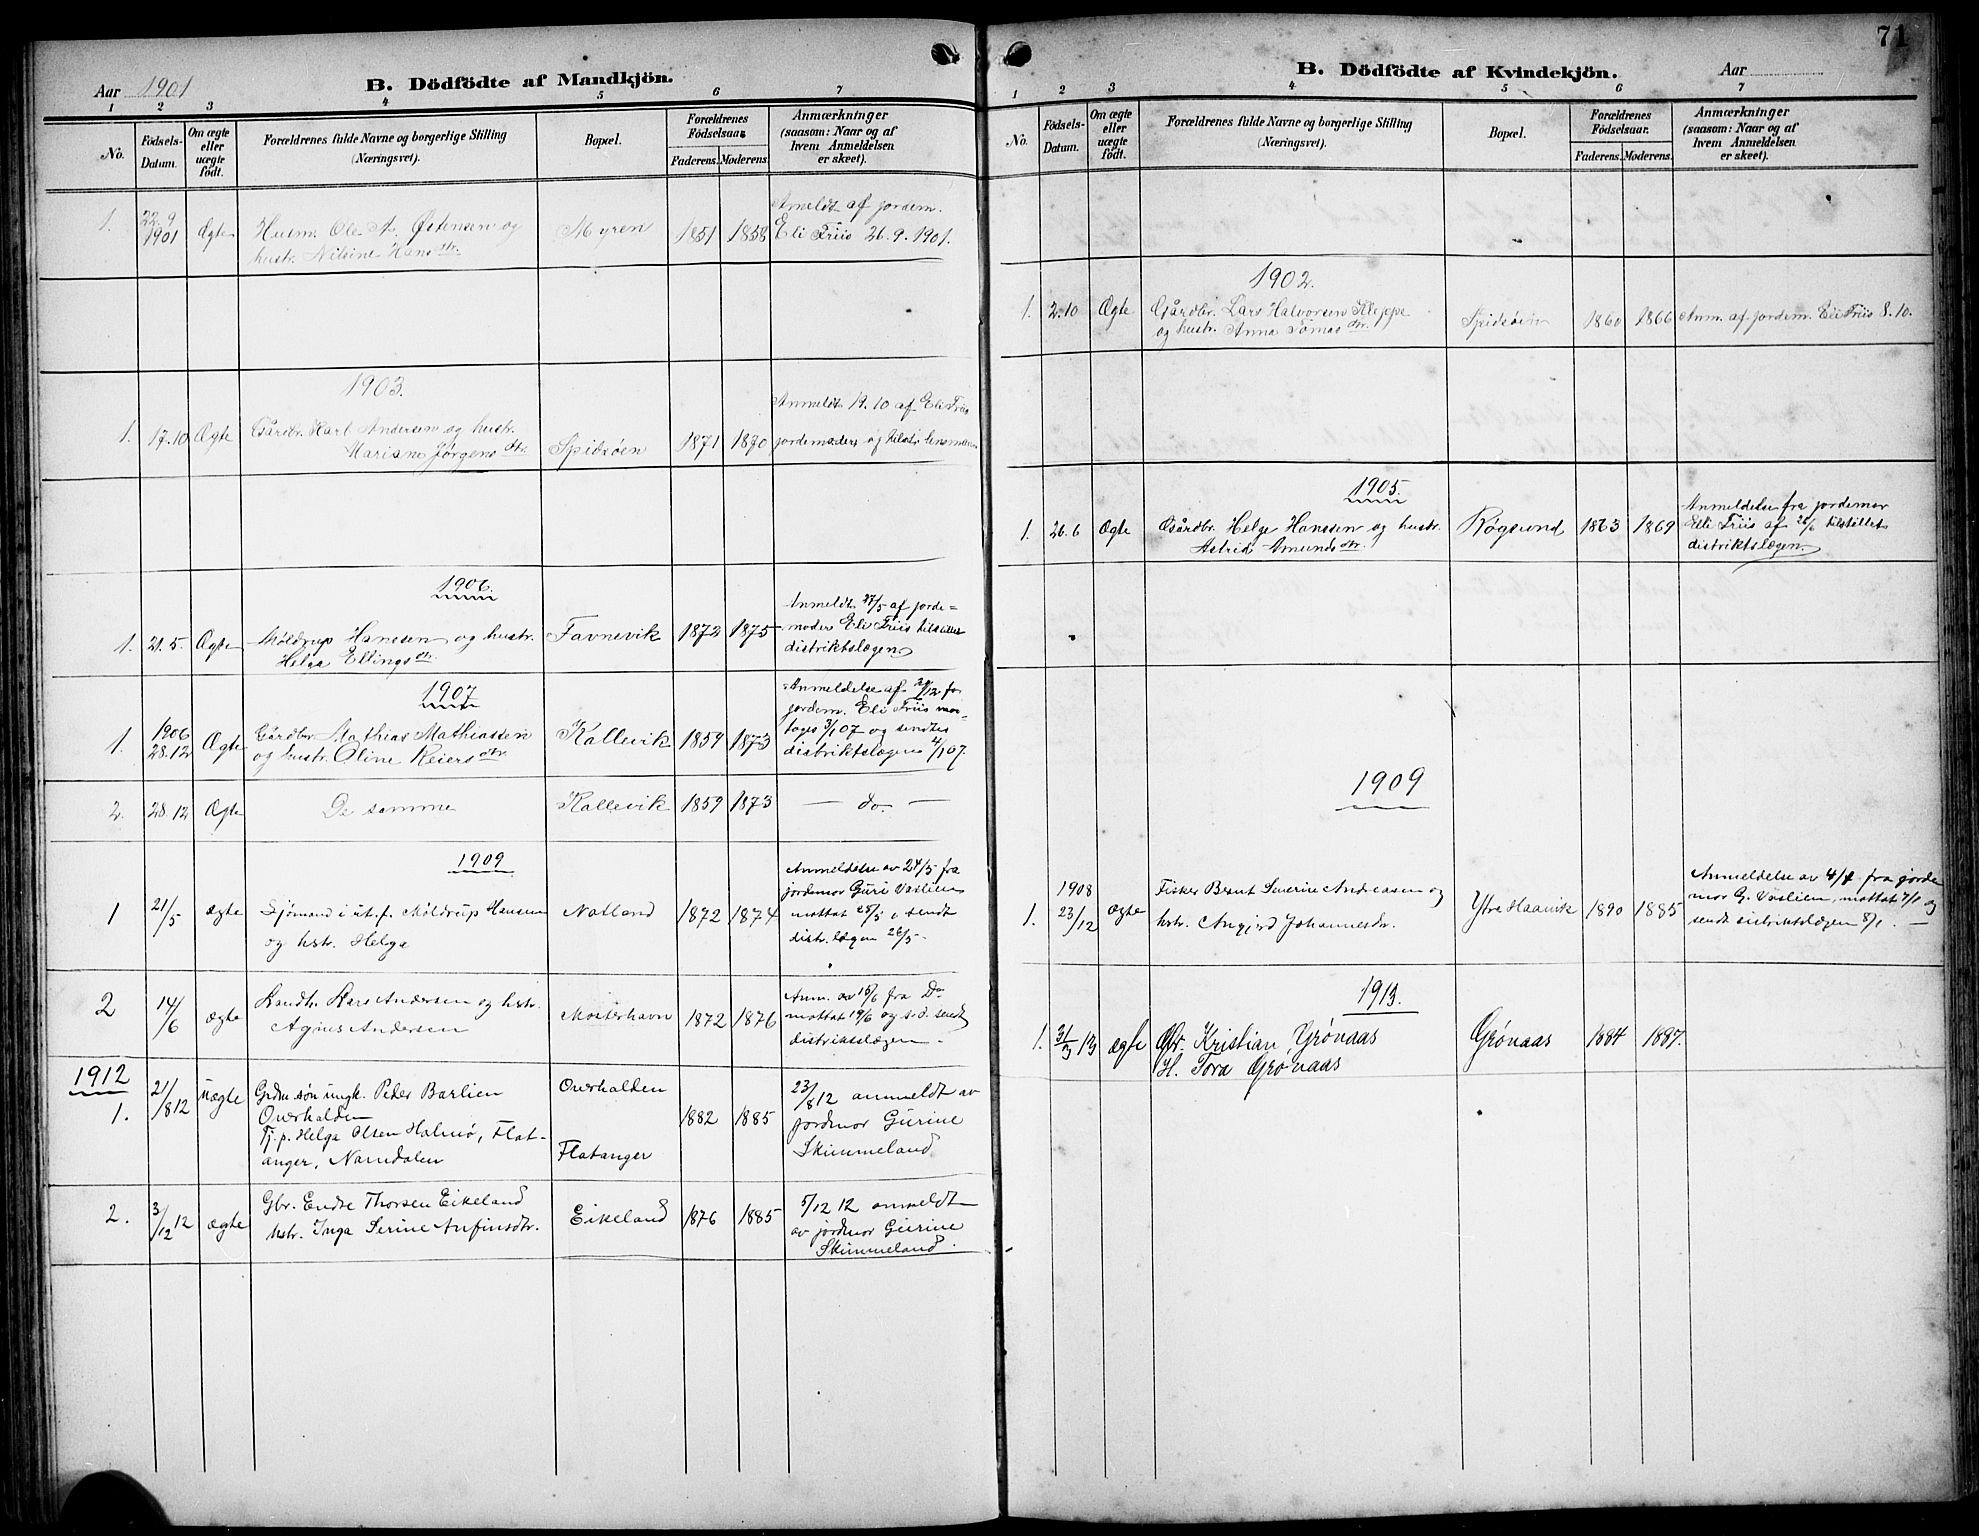 Aar 1901
B. Dödfödte af Mandkjön.
1 2 3 4 5 6 7
No.
Födsels-Datum.
Om ægte eller uægte födt.
Forældrenes fulde Navne og borgerlige Stilling (Næringsvei).
Bopæl.
Forældrenes Födselsaar.
Faderens. Moderens.
Anmærkninger (saasom: Naar og af hvem Anmeldelsen er skeet).
1. 22.9 1901 Ægte Husm. Ole A. Østensen og Myren 1851 1858 Anmeldt af jordem.
hustr. Nilsine Hansdtr. Eli Friis 26.9.1901.
1903.
1. 17.10 Ægte Gårdbr. Karl Andersen og hustr. Spidsøen 1871 1870 Anmeldt 19.10 af Eli Friis
Mariane Jørgensdtr. jordemoder og tilstr. lensmanden
1906.
1. 21.5. Ægte Møldrup Hanssen og hustr. Favnevik 1872 1875 Anmeldt 27/5 af jorde=
Helga Ellingsdtr. moder Eli Friis tilstillet
distriktslægen
1907
1. 1906 28.12 Ægte Gårdbr. Mathias Mathiassen Kallevik 1859 1873 Anmeldelse af 31/12 fra
og hustr. Oline Reiersdtr. jordem. Eli Friis mot-
toges 3/1 07 og sendtes
distriktslægen 4/1 07.
2. 28.12 Ægte De samme Kallevik 1859 1873 — do. —
1909
1 21/5 ægte Sjømand i ut.f. Møldrup Hansen Natland 1872 1874 Anmeldelse av 24/5 fra
og hstr. Helga jordemor Guri Vaslien
mottat 25/5 o. sendt
distr.lægen 26/5 -
2 14/6 ægte Handh. Lars Andersen og hstr. Mosterhavn 1872 1876 Anm. av 15/6 fra Do
Agnes Andersen mottat 19/6 og s.d. sendt
distriktslægen -
1912
1. 21/8 12 uægte Grdm.søn ungk. Peder Barlien Overhalden 1882 1885 23/8 12 anmeldt av
Overhalden jordmor Gurine
Tj.p. Helga Olsen Halmø, Flat- Flatanger Skimmeland
anger, Namdalen
2. 3/12 12 ægte Gbr. Endre Thorsen Eikeland Eikeland 1876 1885 5/12 12 anmeldt
hstr. Inga Serine Anfinsdtr. av jordmor Gurine
Skimmeland.
71
B. Dödfödte af Kvindekjön.
Aar
1 2 3 4 5 6 7
No.
Födsels-Datum.
Om ægte eller uægte födt.
Forældrenes fulde Navne og borgerlige Stilling (Næringsvei).
Bopæl.
Forældrenes Födselsaar.
Faderens. Moderens.
Anmærkninger (saasom: Naar og af hvem Anmeldelsen er skeet).
1902.
1. 2.10 Ægte Gårdbr. Lars Halvorsen Kleppe Spidsøen 1860 1866 Anm. af jordem. Eli Friis 8.10.
og hustr. Anna Tomasdtr.
1905.
1. 26.6 Ægte Gårdbr. Helge Hanssen og hustr. Røgsund 1863 1869 Anmeldelse fra jordemor
Astrid Amundsdtr. Elli Friis af 26/6 tilstillet
distriktslægen.
1909
1. 1908 23/12 ægte Fisker Bernt Severin Andreasen og Ytre Haavik 1890 1885 Anmeldelse av 4/1 fra jorde
hstr. Angjerd Johannesdr. mor G. Vaslien, mottat 7/1 og
sendt distriktslægen 8/1. —
1913.
1. 31/3 13 ægte Gbr. Kristian Grønaas Grønaas 1884 1887.
H. Tora Grønaas